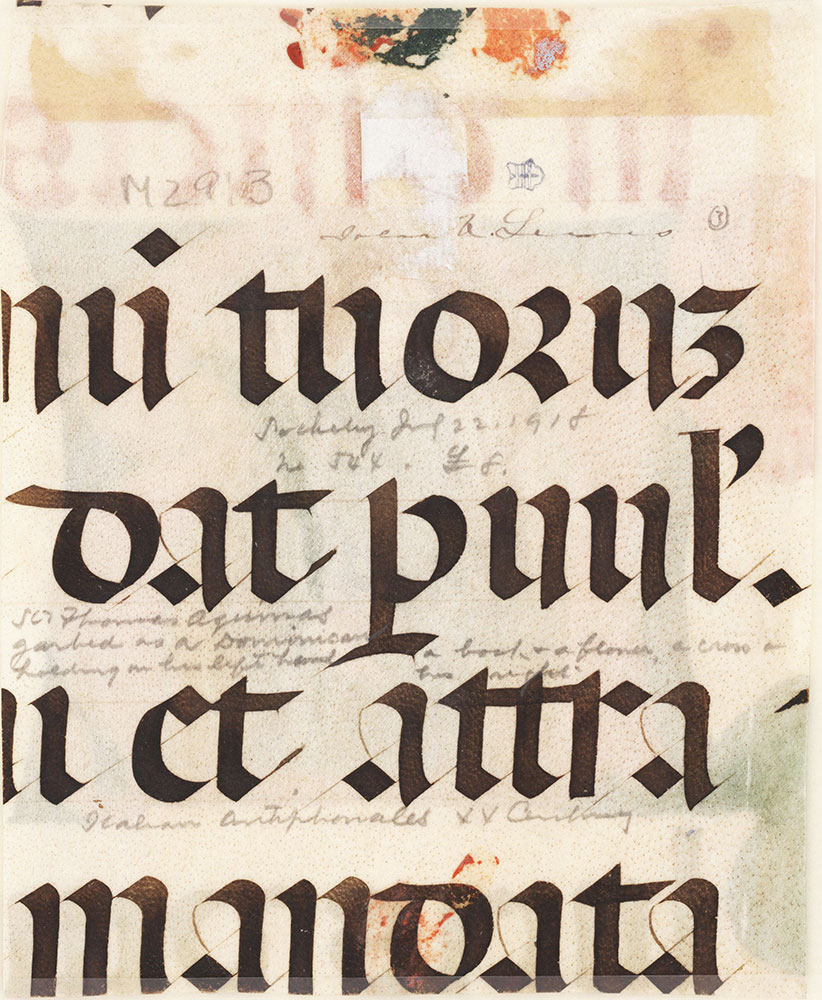 M2913
John F. Lewis
③
nii tuoruʒ
Sotheby Jul 22. 1918
No 544 . £8.
dat puul'.
St Thomas Aquinas
garbed as a Dominican
holding in his left hand
a book & a flower, a cross in
his right
ui et attra
Italian Antiphonales XV Century
mandata